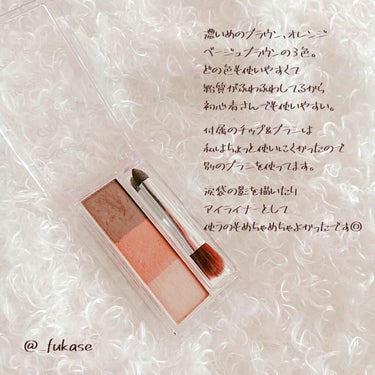 濃いめのブラウン、オレンジ
ベージュブラウンの3色。
どの色も使いやすくて
粉質がふわふわしてるから
初心者さんでも使いやすい。
付属のチップ&ブラシは
私はちょっと使いにくかったので
別のブラシを使ってます。
涙袋の影を描いたり
アイライナーとして
使うのもめちゃめちゃよかったです◎
@_fukase